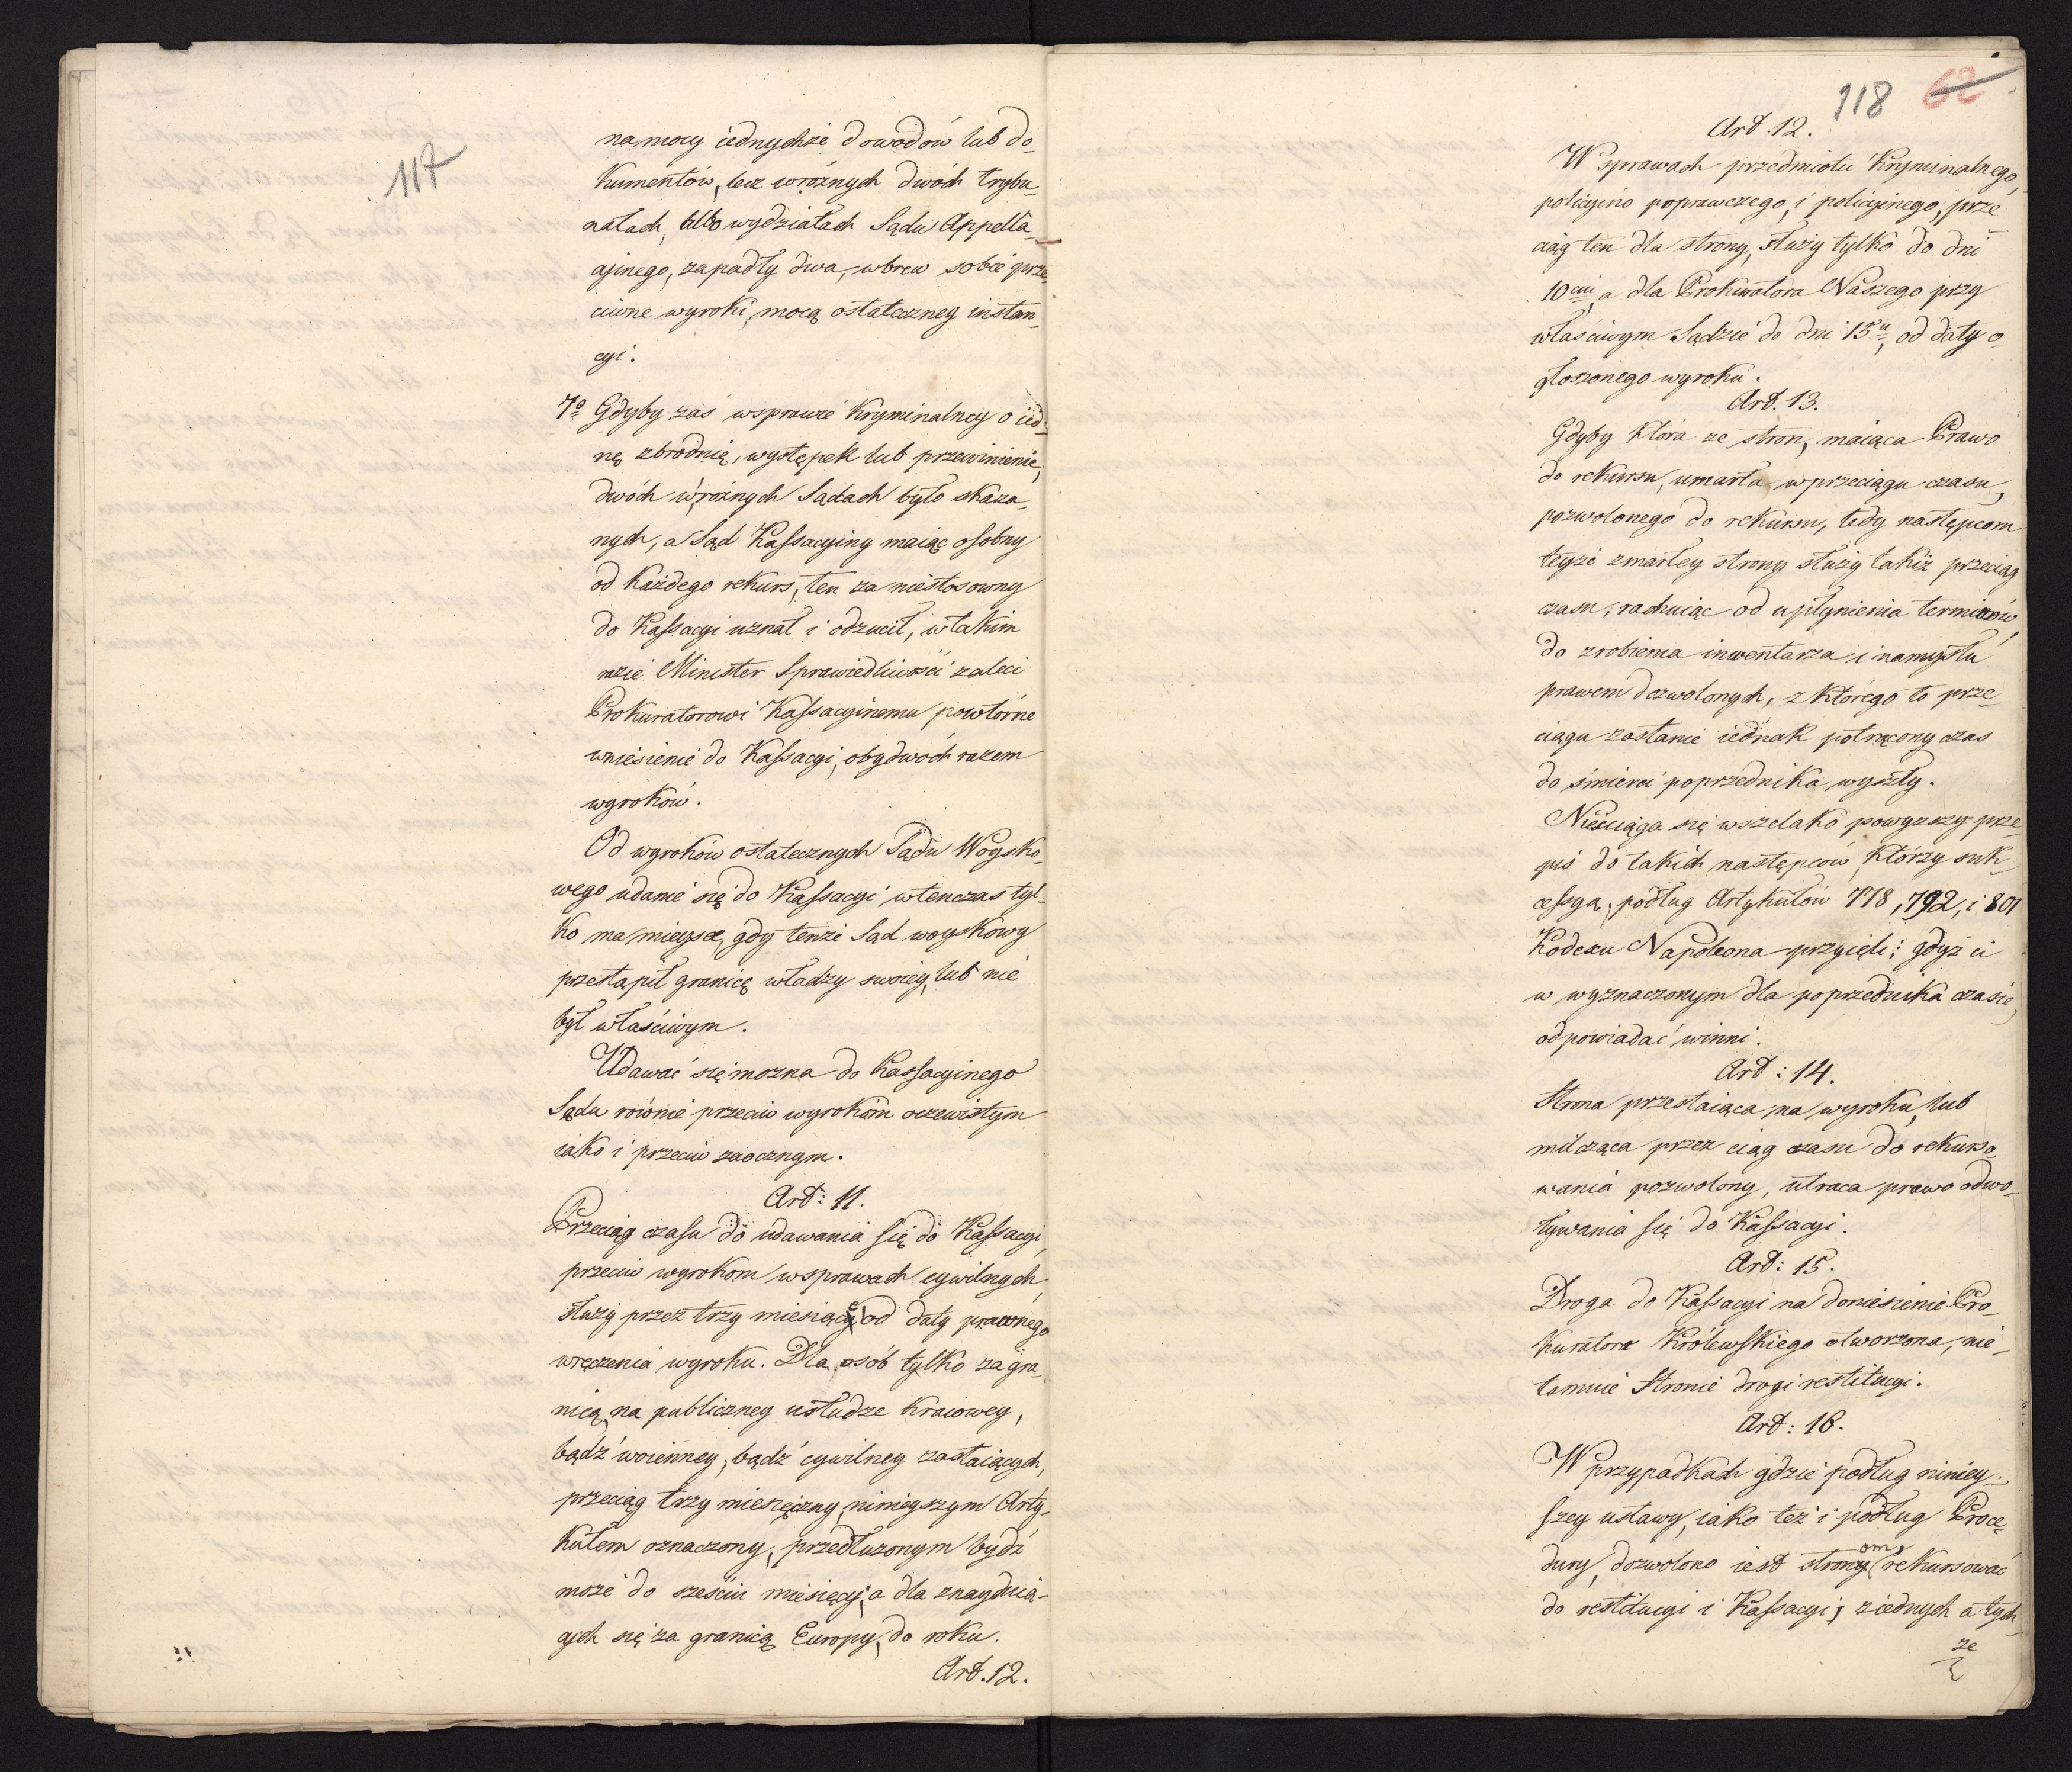 117
na mocy iednychże dowodów lub do-
kumentów, lecz wróżnych dwóch trybu-
nałach, albo wydziałach Sądu Appella-
cyinego, zapadły dwa, wbrew sobie prze-
ciwne wyroki, mocą ostateczney instan-
cyi.
7º Gdyby zaś wsprawie kryminalney o ied-
nę zbrodnię, występek lub przewinienie,
dwóch wróżnych Sądach było skaza-
nych, a Sąd Kassacyiny maiąc osobny
od każdego rekurs, ten za niestosowny
do Kassacyi uznał i odrzucił, wtakim
razie Minister Sprawiedliwości zaleci
Prokuratorowi Kassacyinemu powtórne
wniesienie do Kassacyi, obydwóch razem
wyroków.
Od wyroków ostatecznych Sądu Woysko-
wego udanie się do Kassacyi wtenczas tyl-
ko ma mieysce, gdy tenże Sąd woyskowy
przestąpił granicę władzy swoiey, lub nie
był właściwym.
Udawać się można do Kassacyinego
Sądu równie przeciw wyrokom oczewistym
iako i przeciw zaocznym.
Art: 11.
Przeciąg czasu do udawania się do Kassacyi,
przeciw wyrokom wsprawach cywilnych,
służy przez trzy miesiące od daty prawnego
wręczenia wyroku. Dla osób tylko za gra-
nicą, na publiczney usłudze kraiowey,
bądź woienney, bądź cywilney zostaiących,
przeciąg trzy miesięczny, ninieyszym Arty-
kułem oznaczony, przedłużonym bydź
może do sześciu miesięcy; a dla znayduią-
cych się za granicą Europy, do roku.
Art. 12.
118 62
Art. 12.
W sprawach przedmiotu Kryminalnego,
policyino poprawczego, i policyinego, prze
ciąg ten dla strony, służy tylko do dni
10ciu, a dla Prokuratora Naszego przy
właściwym Sądzie do dni 15u, od daty o-
głoszonego wyroku.
Art. 13.
Gdyby która ze stron, maiąca Prawo
do rekursu, umarła wprzeciągu czasu,
pozwolonego do rekursu, tedy następcom
teyże zmarłey strony służy takiż przeciąg
czasu, rachuiąc od upłynienia terminów,
do zrobienia inwentarza i namysłu
prawem dozwolonych, z którego to prze-
ciągu zostanie iednak potrącony czas
do śmierci poprzednika wyszły.
Nieściąga się wszelako powyższy prze
pis do takich następców, którzy suk-
cessyą, podług Artykułów 778, 792, i 801
Kodexu Napoleona przyięli; gdyż ci
w wyznaczonym dla poprzednika czasie,
odpowiadać winni.
Art: 14.
Strona przestaiąca na wyroku, lub
milcząca przez ciąg czasu do rekurso-
wania pozwolony, utraca prawo odwo-
ływania się do Kassacyi.
Art: 15.
Droga do Kassacyi na doniesienie Pro-
kuratora Królewskiego otworzona, nie-
tamuie Stronie drogi restitucyi.
Art: 16.
W przypadkach gdzie podług niniey-
szey ustawy, iako też i podług Proce-
dury, dozwolono iest stronom rekursować
do restitucyi i Kassacyi, ziednych a tych-
że